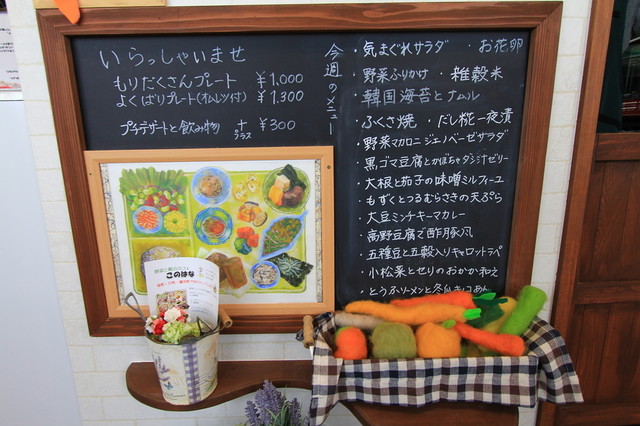 いらっしゃいませ
もりだくさんプレート ¥1,000
よくばりプレート(オムレツ付) ¥1,300
プチデザートと飲み物 + プラス ¥300
今週のメニュー
・気まぐれサラダ ・お花卵
・野菜ふりかけ ・雑穀米
・韓国海苔とナムル
・ふくさ焼 ・だし糀一夜漬
・野菜マカロニジェノベーゼサラダ
・黒ゴマ豆腐とかぼちゃダシジゼリー
・大根と茄子の味噌ミルフィーユ
・もずくとつるむらさきの天ぷら
・大豆ミンチキーマカレー
・高野豆腐で酢豚風
・五種豆と五穀入りキャロットラペ
・小松菜とせりのおかか和え
・とうふりーメンと冬瓜
このはな